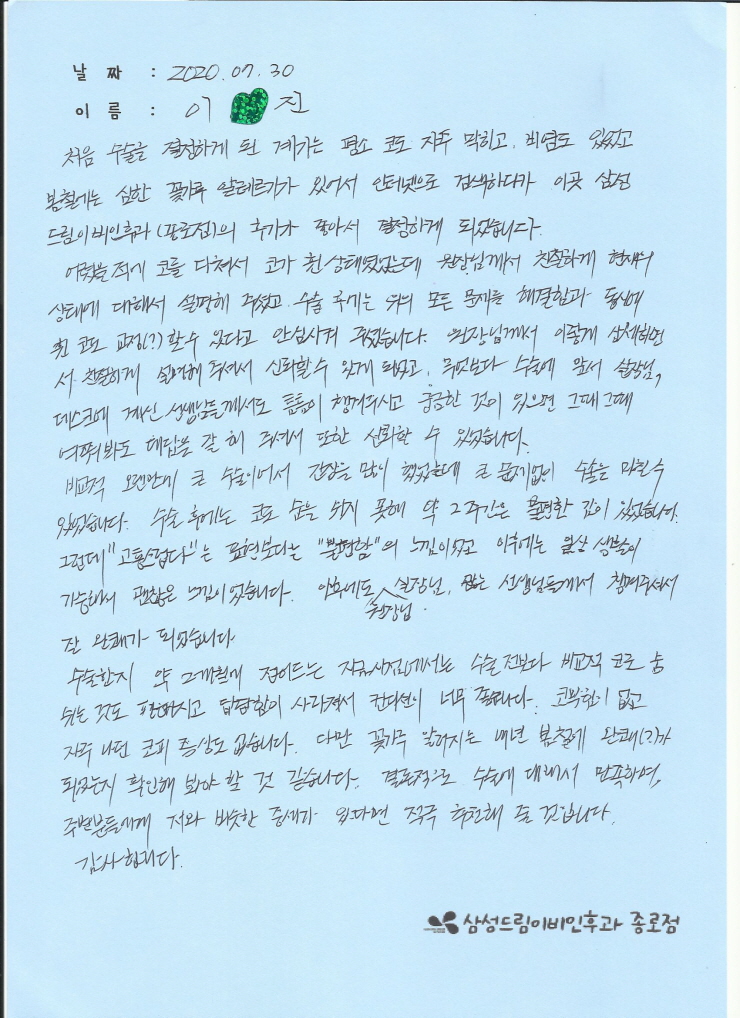 날 짜 : 2020.07.30
이 름 : 이 진
처음 수술을 결정하게 된 계기는 평소 코도 자주 막히고, 비염도 있었고
봄철에는 심한 꽃가루 알레르기가 있어서 인터넷으로 검색하다가 이곳 삼성
드림이비인후과(종로점)의 후기가 많아서 결정하게 되었습니다.
어렸을 적에 코를 다쳐서 코가 휜 상태였었는데 원장님께서 친절하게 현재의
상태에 대해서 설명해 주셨고, 수술 후에는 위의 모든 문제를 해결함과 동시에
휜 코도 교정(?)할 수 있다고 안심시켜 주셨습니다. 원장님께서 이렇게 상세하면
서 친절하게 설명해 주셔서 신뢰할 수 있게 되었고, 무엇보다 수술에 앞서 실장님,
데스크에 계신 선생님들께서도 틈틈이 챙겨주시고 궁금한 것이 있으면 그때그때
여쭤봐도 대답을 잘 해 주셔서 또한 신뢰할 수 있었습니다.
비교적 오랜만에 큰 수술이어서 긴장을 많이 했었는데 큰 문제없이 수술을 마칠 수
있었습니다. 수술 후에는 코로 숨을 쉬지 못해 약 2주간은 불편한 감이 있었습니다.
그런데 "고통스럽다"는 표현보다는 "불편함"의 느낌이었고 이후에는 일상 생활이
가능해서 괜찮은 느낌이었습니다. 이후에도 실장님, 원장님, 많은 선생님들께서 챙겨주셔서
잘 완쾌가 되었습니다
수술한지 약 2개월에 접어드는 지금시점에서는 수술 전보다 비교적 코로 숨
쉬는 것도 편해지고 답답함이 사라져서 컨디션이 너무 좋습니다. 코막힘이 없고
자주 나던 코피 증상도 없습니다. 다만 꽃가루 알러지는 내년 봄철에 완쾌(?)가
되었는지 확인해 봐야 할 것 같습니다. 결론적으로 수술에 대해서 만족하며,
주변분들에게 저와 비슷한 증세가 있다면 적극 추천해 줄 것입니다.
감사합니다.
삼성드림이비인후과 종로점